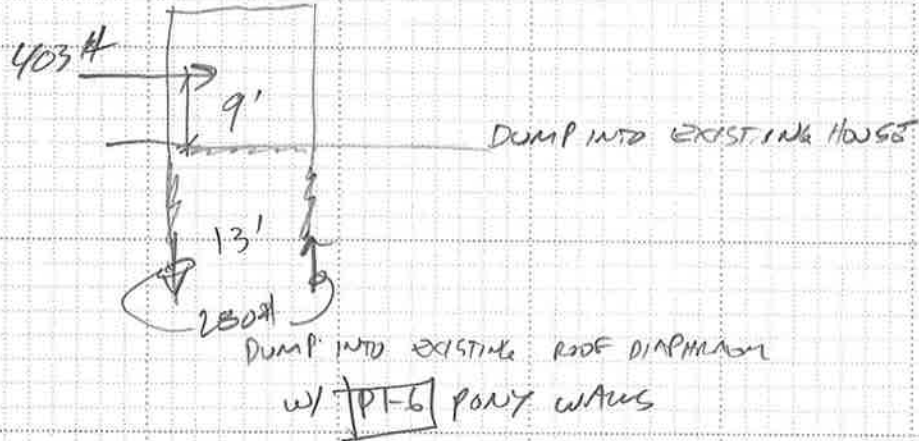 403 #
9'
DUMP INTO EXISTING HOUSE
13'
280#
DUMP INTO EXISTING ROOF DIAPHRAGM
W/ P1-6 PONY WALLS